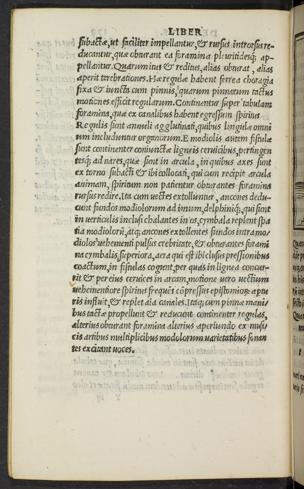 LIBER
subactæ, ut faciliter impellantur, & rursus introrsus re-
ducantur, quæ obturant ea foramina
pellantur. Quarum itus & reditus, alias obturat, alias
aperit terebrationes. Hæ regulæ habent ferrea choragia
fixa & iuncta cum pinnis, quarum pinnarum tactus
motiones efficit regularum. Continentur super tabulam
foramina, quæ ex canalibus habent egressum spiritus
Regulis sunt annuli agglutinati, quibus lingulæ omni
um includuntur organorum. E modiolis autem fistulæ
sunt continenter coniunctæ ligneis ceruicibus, pertingen
tesq; ad nares, quæ sunt in arcula, in quibus axes sunt
ex torno subacti & ibi collocati, qui cum recipit arcula
animam, spiritum non patientur obturantes foramina
rursus redire. Ita cum uectes extolluntur, ancones dedu-
cunt fundos modiolorum ad imum, delphiniq;, qui sunt
in uerticulis inclusi
tia modiolorū, atq; ancones extollentes fundos intra mo-
diolos uehementi pulsus crebritate, & obturantes forami
na cymbalis superiora, aera qui est ibi clusus pressionibus
coactum, in fistulas cogunt, per quas in lignea concur-
rit & per eius ceruices in arcam, motione uero uectium
uehementiore spiritus frequēs cōpressus epistomiorū aper
ris influit, & replet aīa canales. Itaq; cum pinnæ mani
bus tactæ propellunt & reducunt continenter regulas,
alterius obturant foramina alterius aperiundo ex musi
cis artibus multiplicibus modolorum uarietatibus sonan
tes excitant uoces.